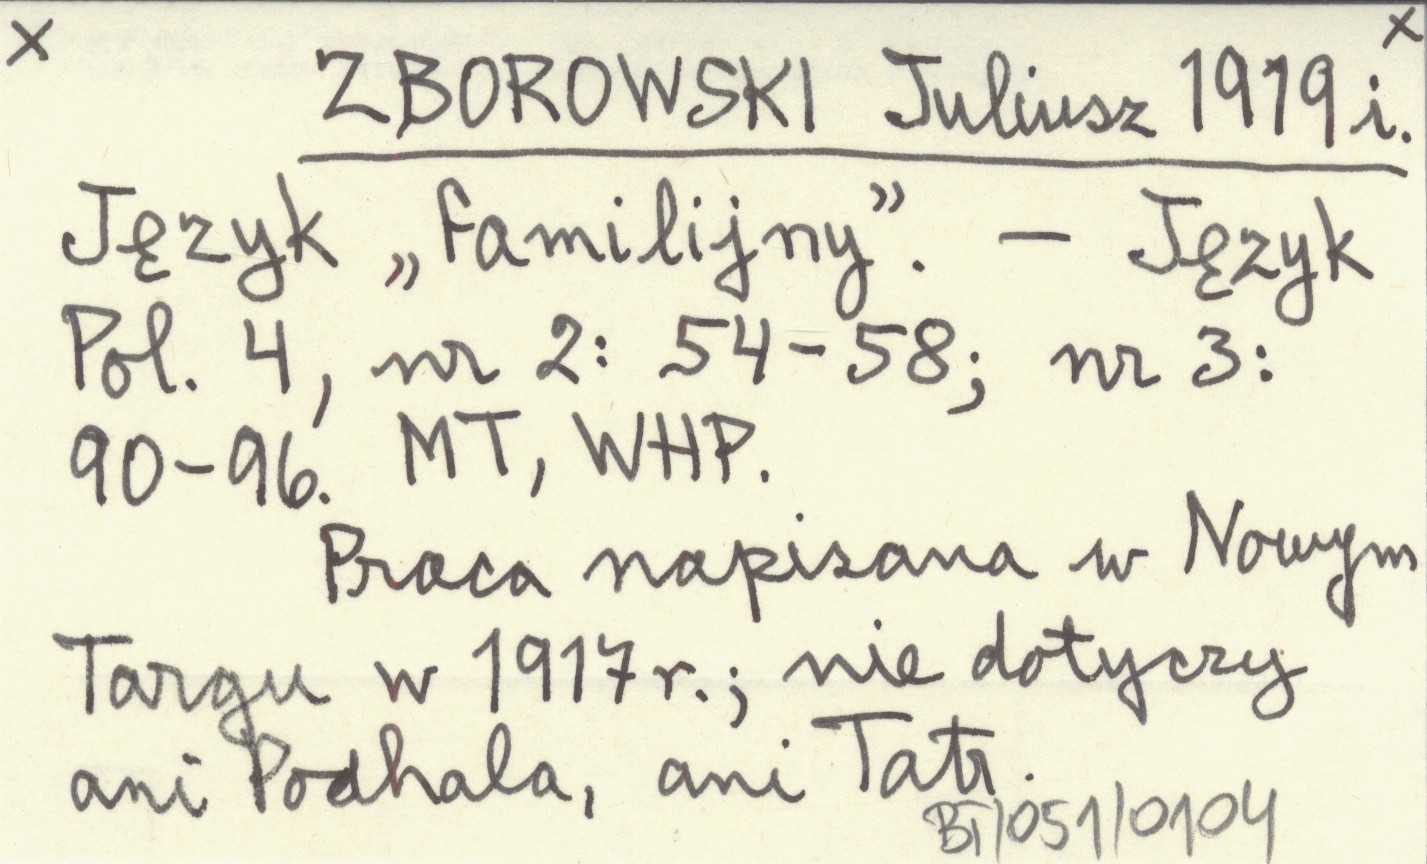 x x
ZBOROWSKI Juliusz 1919 i.
Język „familijny”. – Język
Pol. 4, nr 2: 54-58; nr 3:
90-96. MT, WHP.
Praca napisana w Nowym
Targu w 1917 r.; nie dotyczy
ani Podhala, ani Tatr.
BT/051/0104